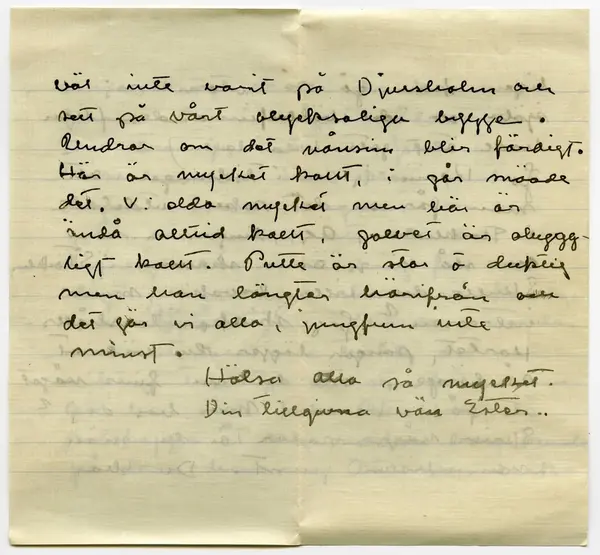 väl inte varit på Djursholm och
sett på vårt olycksaliga bygge.
Undrar om det nånsin blir färdigt.
Här är mycket kallt, i går snöade
det. Vi elda mycket men här är
ändå alltid kallt, golvet är olygg-
ligt kallt. Putte är stor o duktig
men han längtar härifrån och
det gör vi alla, jungfrun inte
minst.
Hälsa alla så mycket.
Din tillgivna vän Ester..